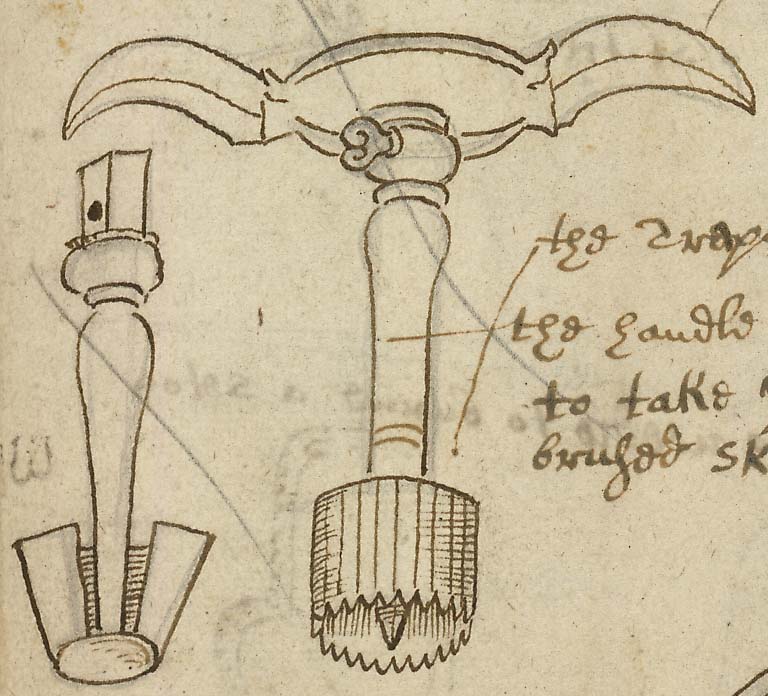 the Trap
the handle
to take
brused sk